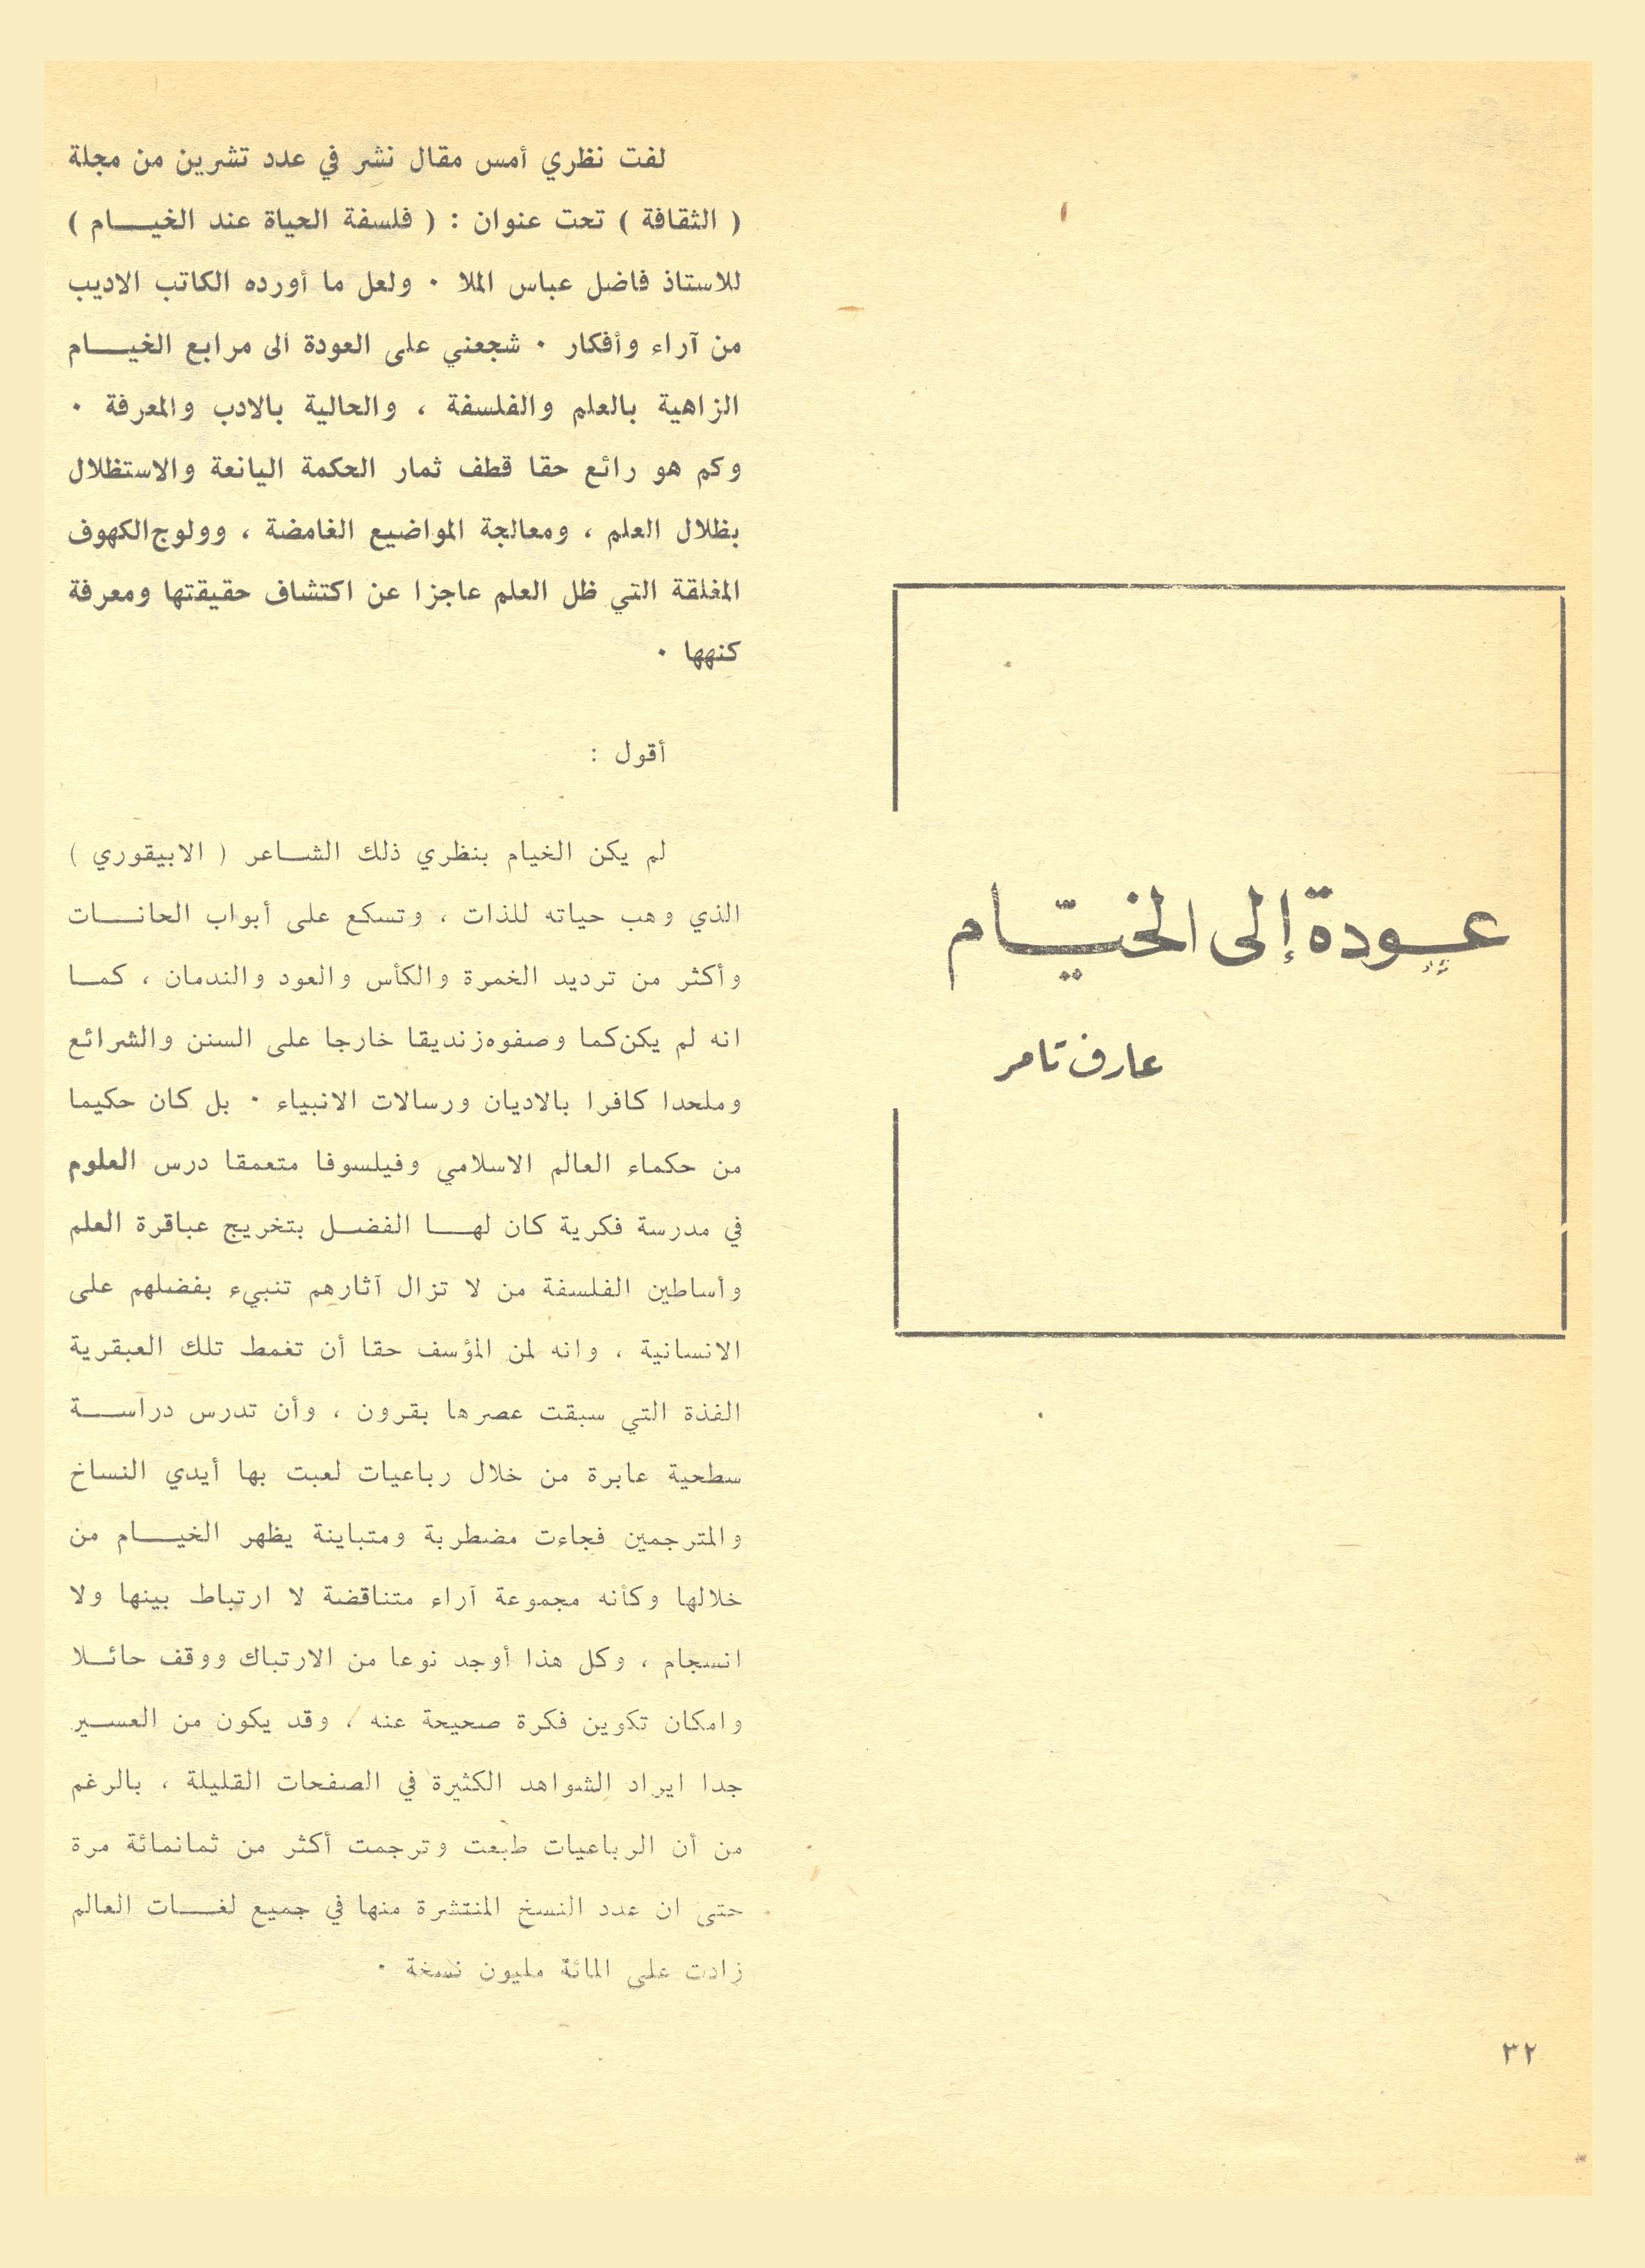 عودة إلى الخيّام
عارف تامر
لفت نظري أمس مقال نشر في عدد تشرين من مجلة
( الثقافة ) تحت عنوان : ( فلسفة الحياة عند الخيام )
للاستاذ فاضل عباس الملا . ولعل ما أورده الكاتب الاديب
من آراء وأفكار . شجعني على العودة الى مرابع الخيام
الزاهية بالعلم والفلسفة ، والحالية بالادب والمعرفة .
وكم هو رائع حقا قطف ثمار الحكمة اليانعة والاستظلال
بظلال العلم ، ومعالجة المواضيع الغامضة ، وولوج الكهوف
المغلقة التي ظل العلم عاجزا عن اكتشاف حقيقتها ومعرفة
كنهها .
أقول :
لم يكن الخيام بنظري ذلك الشاعر ( الابيقوري )
الذي وهب حياته للذات ، وتسكع على أبواب الحانات
وأكثر من ترديد الخمرة والكأس والعود والندمان ، كما
انه لم يكن كما وصفوه زنديقا خارجا على السنن والشرائع
وملحدا كافرا بالاديان ورسالات الانبياء . بل كان حكيما
من حكماء العالم الاسلامي وفيلسوفا متعمقا درس العلوم
في مدرسة فكرية كان لها الفضل بتخريج عباقرة العلم
وأساطين الفلسفة من لا تزال آثارهم تنبيء بفضلهم على
الانسانية ، وانه لمن المؤسف حقا أن تغمط تلك العبقرية
الفذة التي سبقت عصرها بقرون ، وأن تدرس دراسة
سطحية عابرة من خلال رباعيات لعبت بها أيدي النساخ
والمترجمين فجاءت مضطربة ومتباينة يظهر الخيام من
خلالها وكأنه مجموعة آراء متناقضة لا ارتباط بينها ولا
انسجام ، وكل هذا أوجد نوعا من الارتباك ووقف حائلا
وامكان تكوين فكرة صحيحة عنه ، وقد يكون من العسير
جدا ايراد الشواهد الكثيرة في الصفحات القليلة ، بالرغم
من أن الرباعيات طبعت وترجمت أكثر من ثمانمائة مرة
حتى ان عدد النسخ المنتشرة منها في جميع لغات العالم
زادت على المائة مليون نسخة .
٣٢